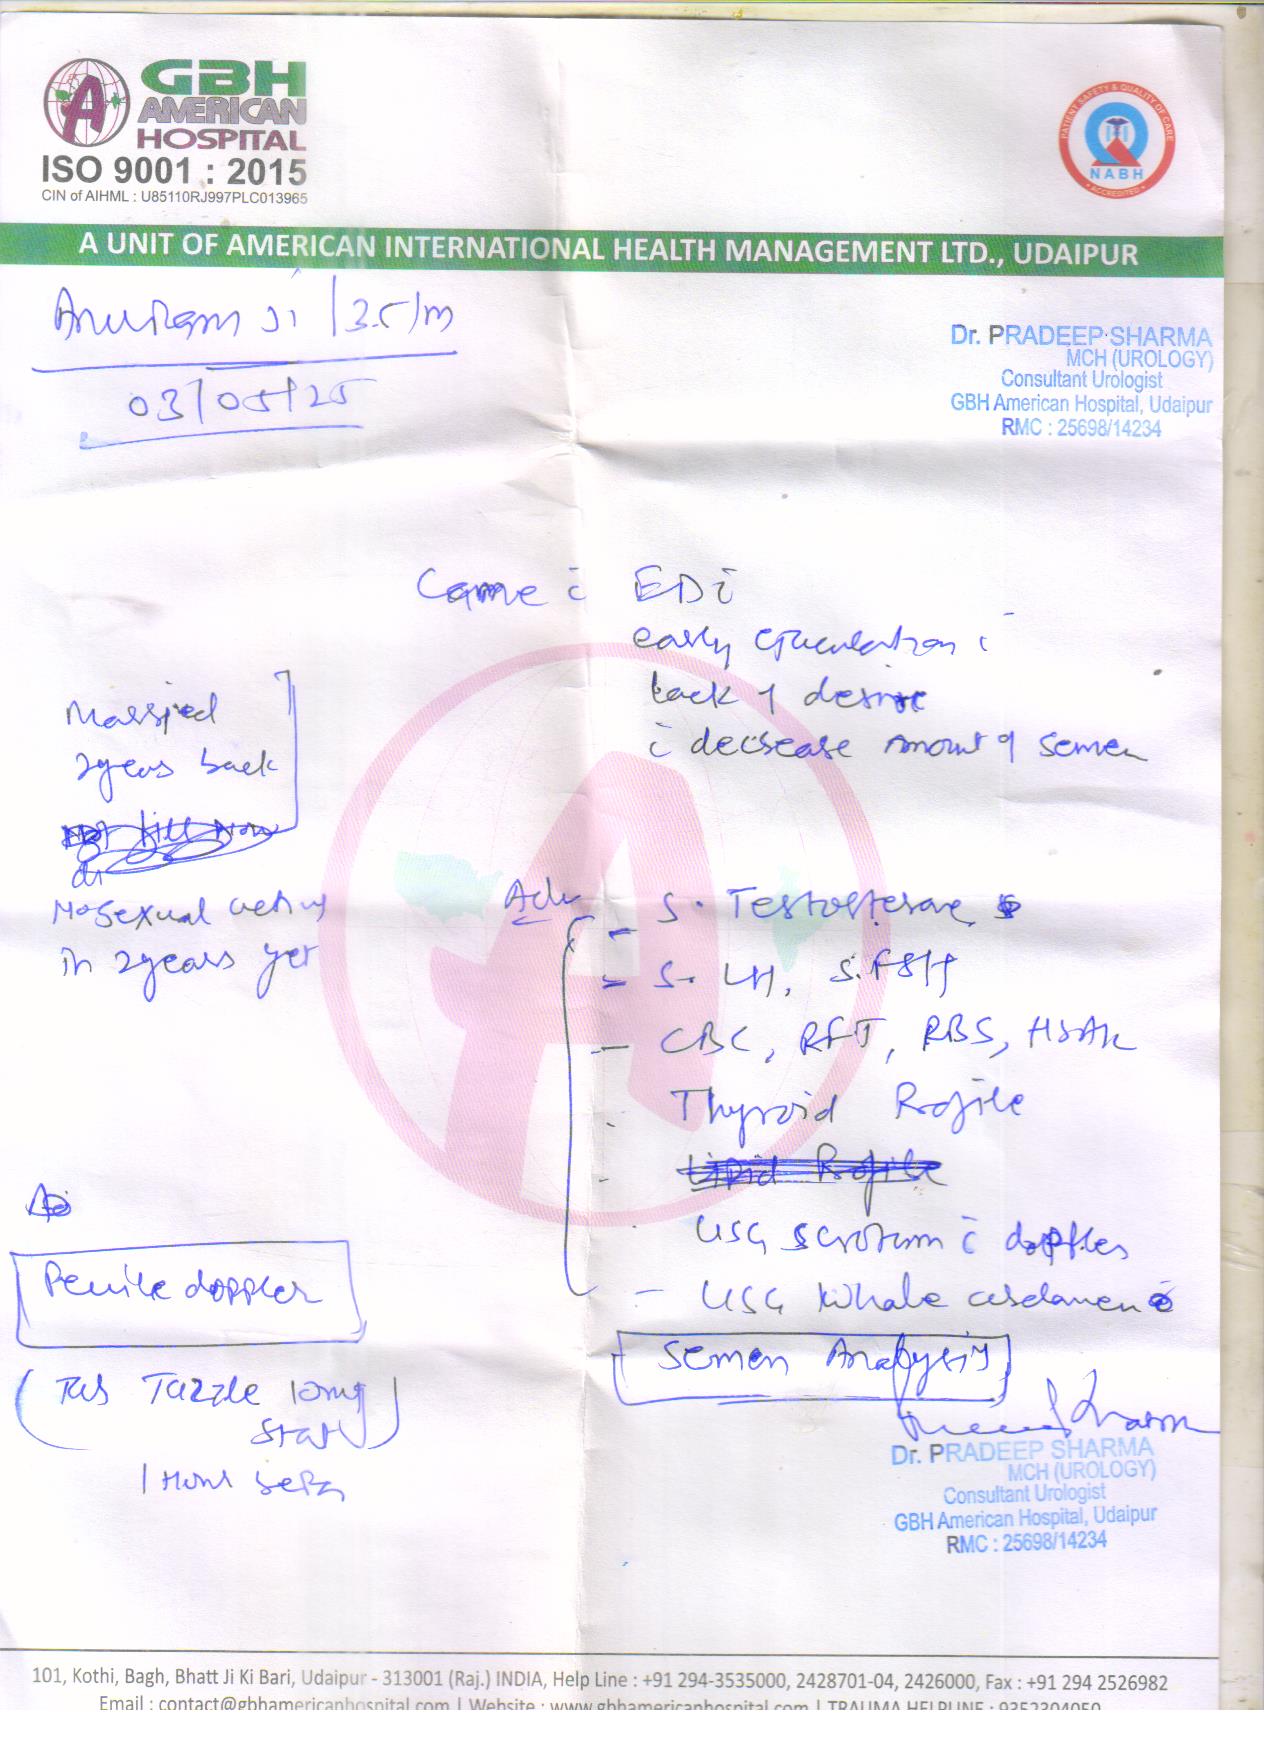 GBH
AMERICAN
HOSPITAL
ISO 9001 : 2015
CIN of AIHML : U85110RJ997PLC013965
PATIENT SAFETY & QUALITY OF CARE
NABH
ACCREDITED
A UNIT OF AMERICAN INTERNATIONAL HEALTH MANAGEMENT LTD., UDAIPUR
Ji / 35/m
03/05/25
Dr. PRADEEP SHARMA
MCH (UROLOGY)
Consultant Urologist
GBH American Hospital, Udaipur
RMC : 25698/14234
Came c̄ ED c̄
early ejaculation c̄
lack of desire
c̄ decrease amount of semen
Married
2 years back
No sexual
in 2 years yet
Adv
- S. Testosterone
- S. LH, S. FSH
- CBC, RFT, RBS,
Thyroid Profile
Lipid Profile
USG scrotum c̄ doppler
- USG Whole abdomen
Semen Analysis
Penile doppler
(Tab Tazzle 10mg
Stat)
1 Hour
Dr. PRADEEP SHARMA
MCH (UROLOGY)
Consultant Urologist
GBH American Hospital, Udaipur
RMC : 25698/14234
101, Kothi, Bagh, Bhatt Ji Ki Bari, Udaipur - 313001 (Raj.) INDIA, Help Line : +91 294-3535000, 2428701-04, 2426000, Fax : +91 294 2526982
Email : contact@gbhamericanhospital.com | Website : www.gbhamericanhospital.com | TRAUMA HELPLINE : 9352304050